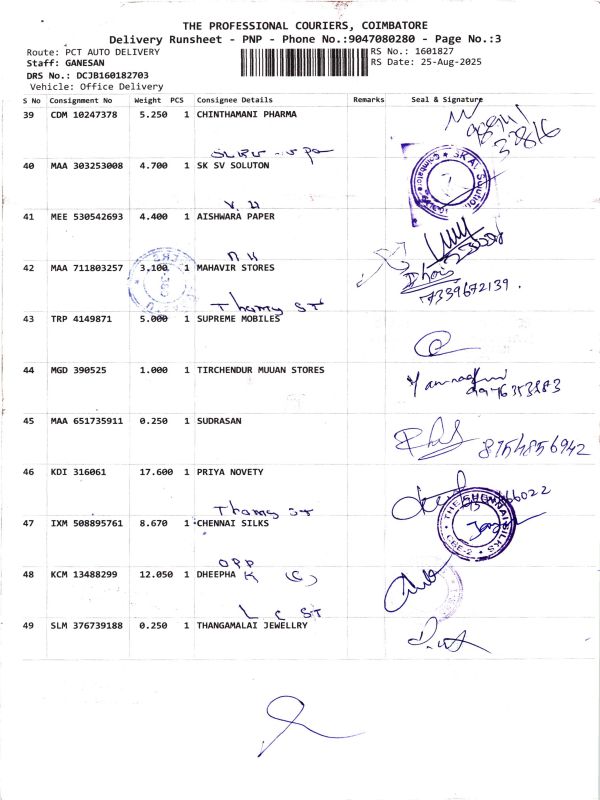 THE PROFESSIONAL COURIERS, COIMBATORE
Delivery Runsheet - PNP - Phone No.:9047080280 - Page No.:3
Route: PCT AUTO DELIVERY RS No.: 1601827
Staff: GANESAN RS Date: 25-Aug-2025
DRS No.: DCJB160182703
Vehicle: Office Delivery
S No Consignment No Weight PCS Consignee Details Remarks Seal & Signature
39 CDM 10247378 5.250 1 CHINTHAMANI PHARMA
40 MAA 303253008 4.700 1 SK SV SOLUTON
V. H
41 MEE 530542693 4.400 1 AISHWARA PAPER
42 MAA 711803257 3.100 1 MAHAVIR STORES
7339672139.
Thomy ST
43 TRP 4149871 5.000 1 SUPREME MOBILES
44 MGD 390525 1.000 1 TIRCHENDUR MUUAN STORES
9976353883
45 MAA 651735911 0.250 1 SUDRASAN
8754856942
46 KDI 316061 17.600 1 PRIYA NOVETY
Thomy ST
47 IXM 508895761 8.670 1 CHENNAI SILKS
THE CHENNAI SILKS
CBE-2
OPP
48 KCM 13488299 12.050 1 DHEEPHA K (C)
L C ST
49 SLM 376739188 0.250 1 THANGAMALAI JEWELLRY